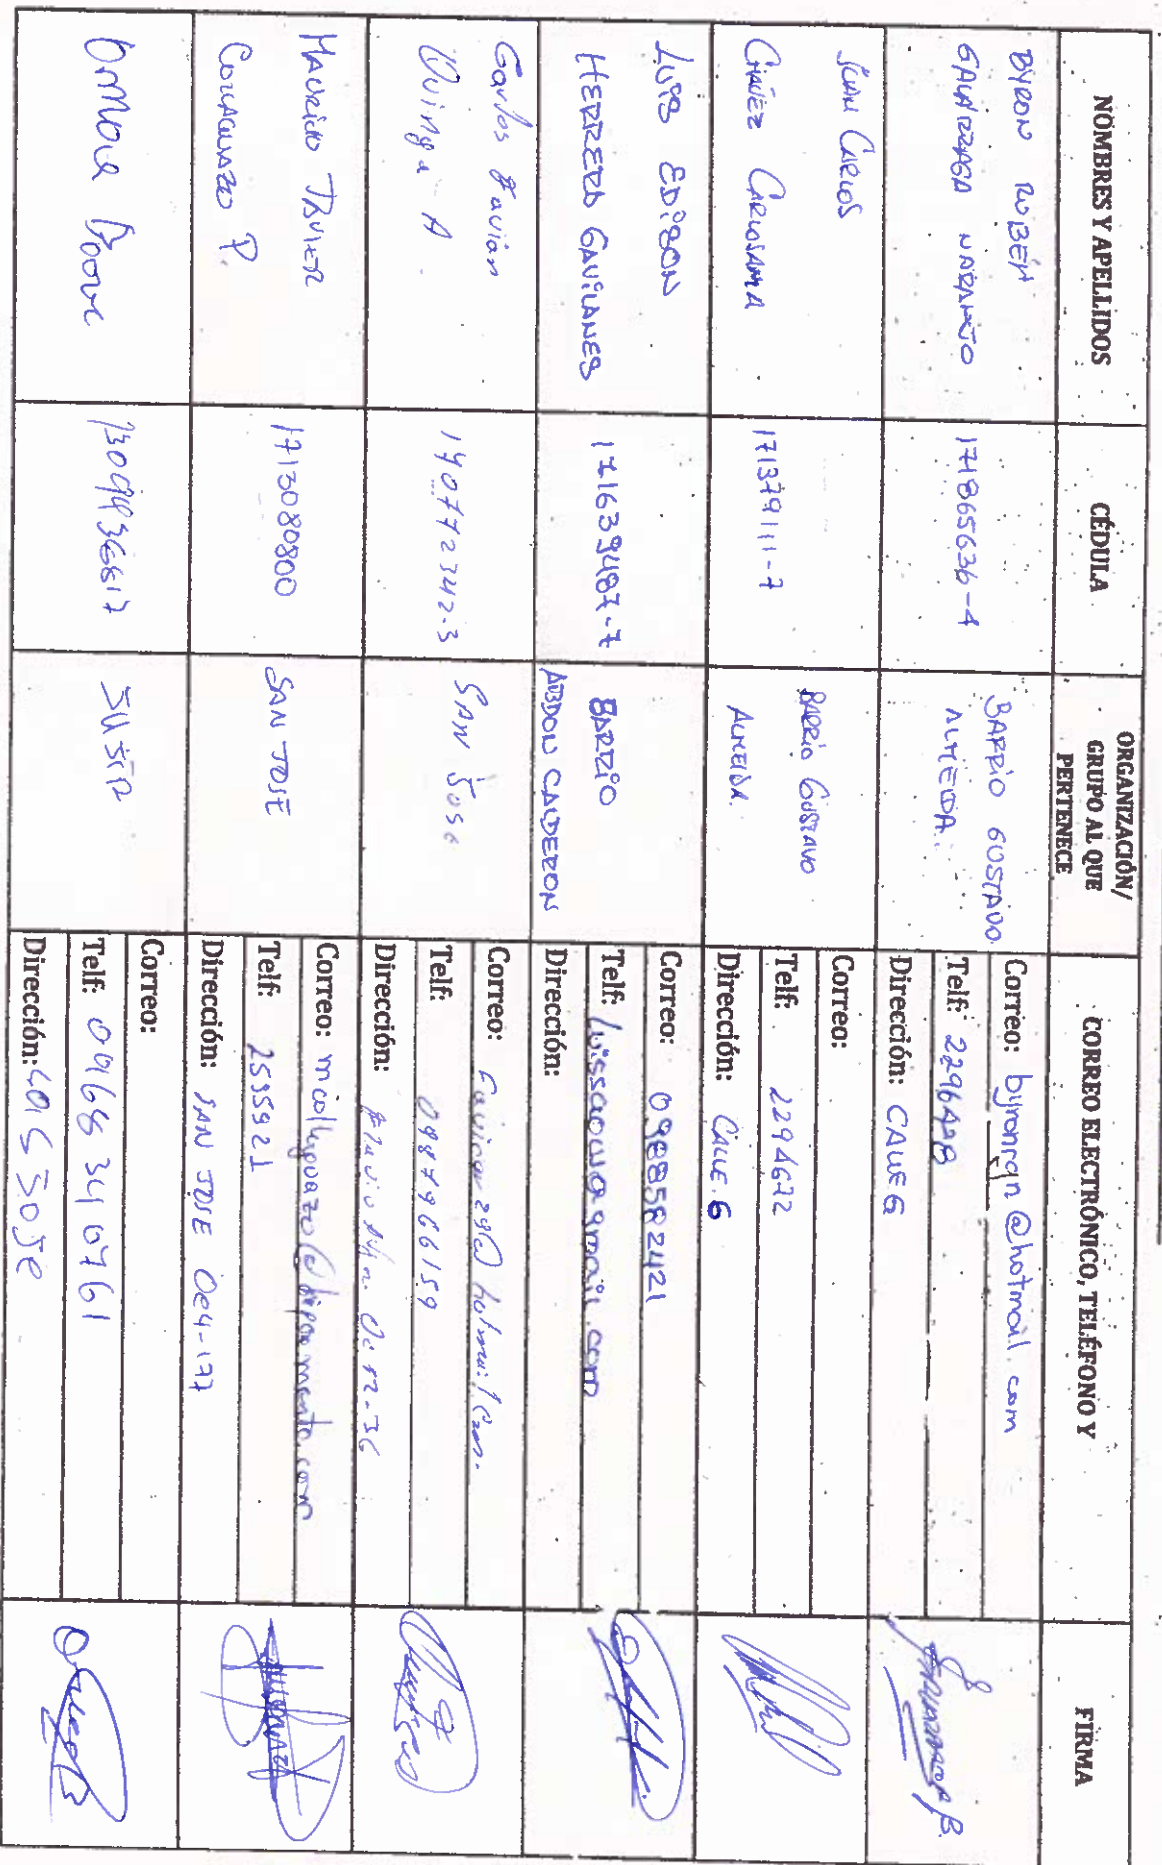 NOMBRES Y APELLIDOS
CÉDULA
ORGANIZACIÓN/
GRUPO AL QUE
PERTENECE
CORREO ELECTRÓNICO, TELÉFONO Y
FIRMA
BYRON RUBÉN
GALARRAGA NARANJO
171865636-4
BARRIO GUSTAVO
ALMEIDA.
Correo: byronrgn@hotmail.com
Telf: 2296498
Dirección: CALLE 6
JUAN CARLOS
CHÁVEZ CARLOSAMA
171379111-7
BARRIO GUSTAVO
ALMEIDA.
Correo:
Telf: 2294672
Dirección: CALLE 6
LUIS EDISON
HERRERA GAVILANES
171639487-7
BARRIO
ABDON CALDERON
Correo: 0988582421
Telf:
Dirección:
Carlos Favian
Quinga A
SAN JOSE
Correo:
Telf: 0987966159
Dirección:
MAURICIO JAVIER
COLLAGUAZO P.
1713080800
SAN JOSE
Correo:
Telf: 2595921
Dirección: SAN JOSE Oe4-177
SAN JOSE
Correo:
Telf: 0968340761
Dirección: